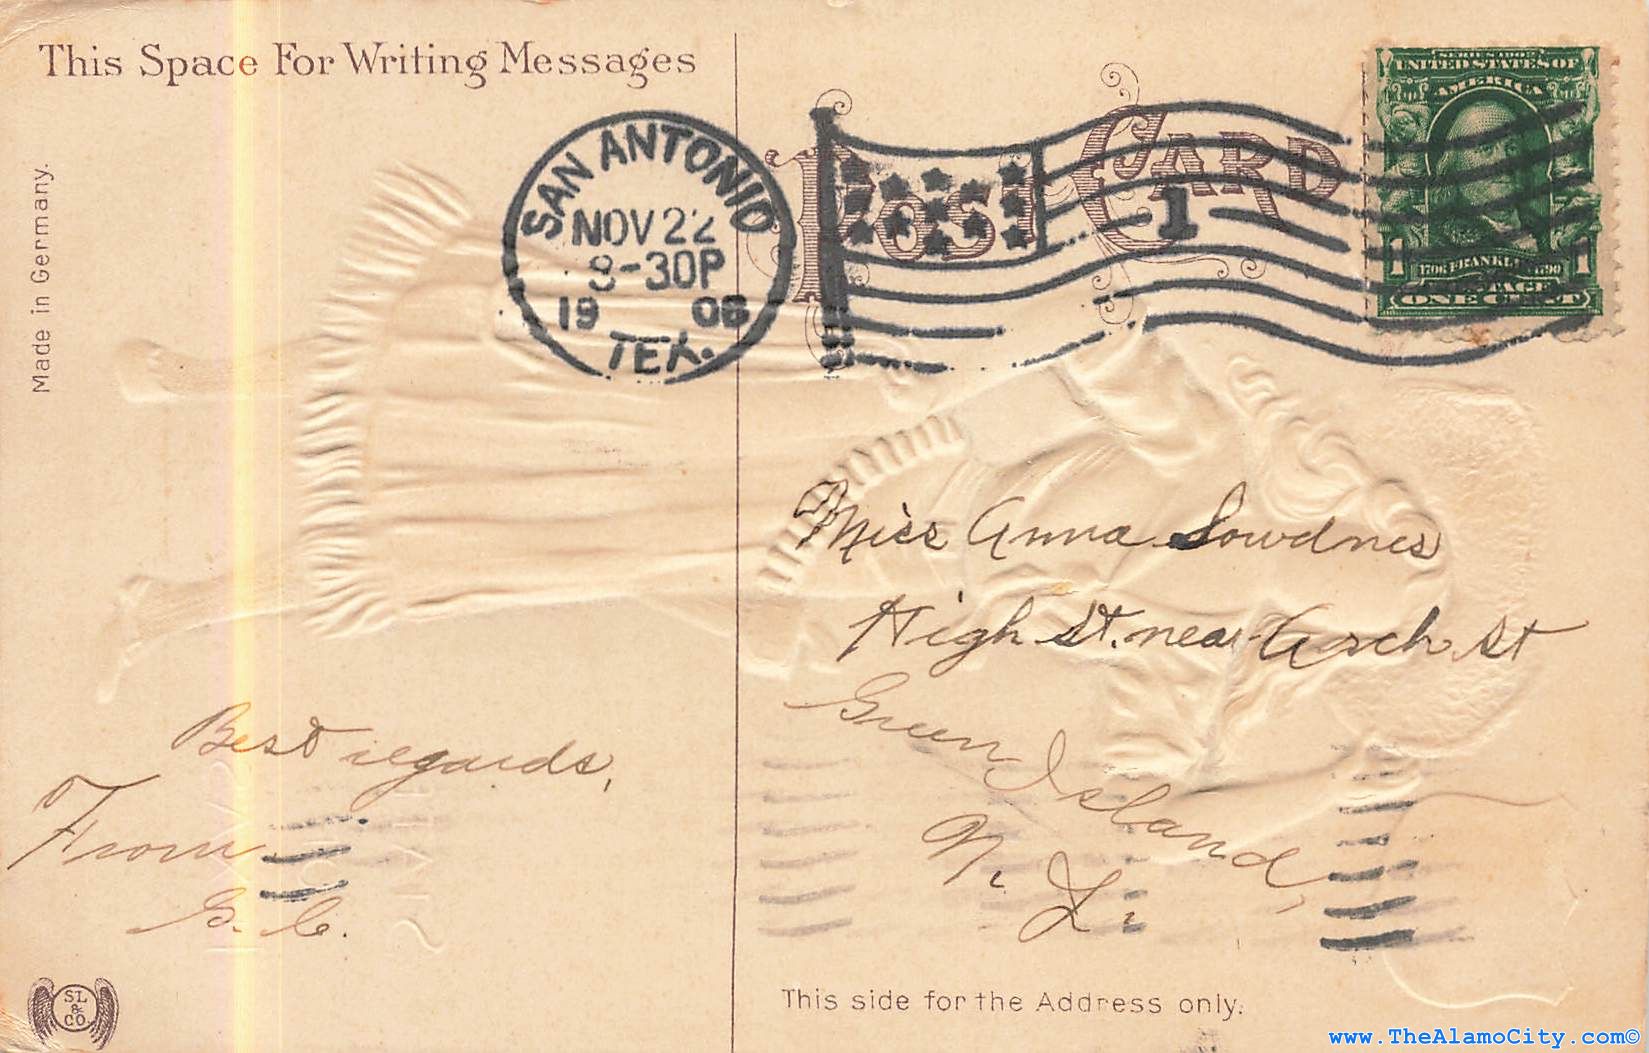 This Space For Writing Messages
Made in Germany.
SAN ANTONIO
NOV 22
8-30P
19 08
TEX.
POST CARD
1
SERIES 1902
UNITED STATES OF
AMERICA
1706 FRANKLIN 1790
1 1
POSTAGE
ONE CENT
Miss Anna Sowdnes
High St. near Arch St
Green Island,
N. Y.
Best regards,
From
G. C.
SL
&
CO.
This side for the Address only.
www.TheAlamoCity.com©